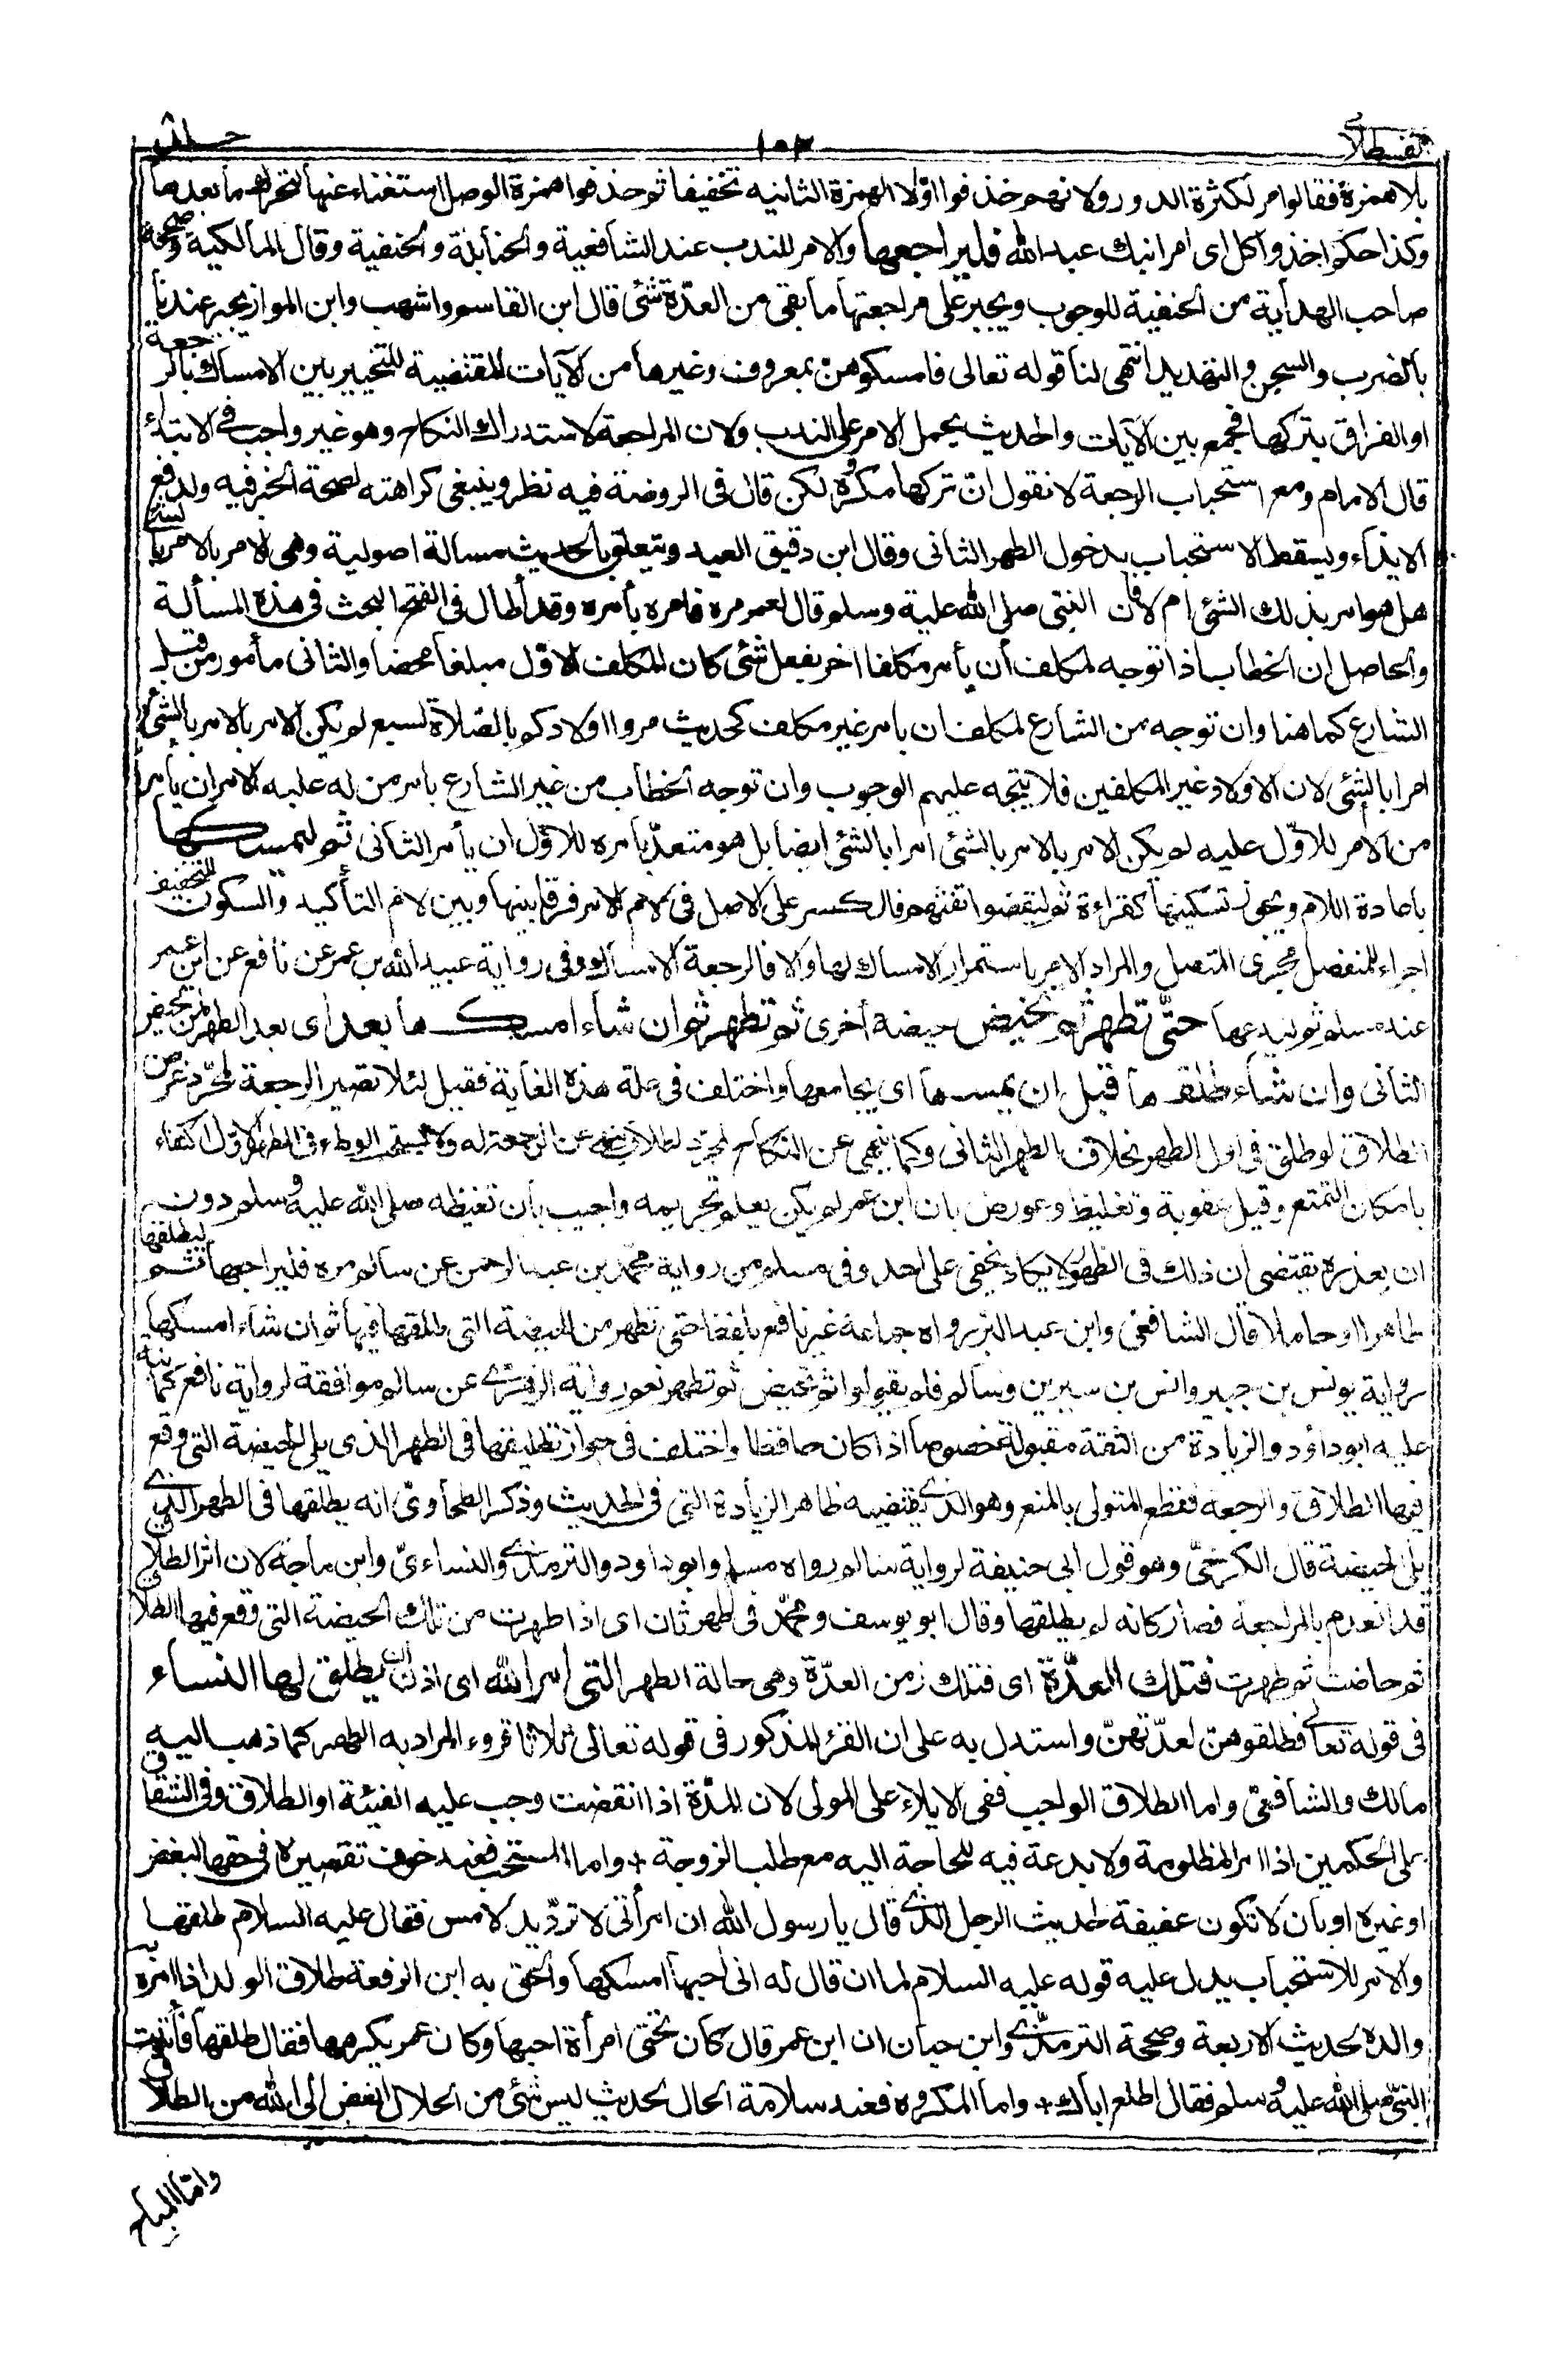 قسطلانی ١٠٣ جـ ٨
بلا همزة فقالوا مر لكثرة الدور ولانهم حذفوا اولا الهمزة الثانيه تخفيفا ثم حذفوا همزة الوصل استغناء عنها لتحرك ما بعدها
وكذا حكم اخذ واكل اى امر ابنك عبد الله فليراجعها والامر للندب عند الشافعية والحنابلة والحنفية وقال المالكية وصححه
صاحب الهداية من الحنفية للوجوب ويجبر على مراجعتها ما بقى من العدّة شئ قال ابن القاسم واشهب وابن المواز يجبر عندنا
بالضرب والسجن والتهديد انتهى لنا قوله تعالى فامسكوهن بمعروف وغيرها من الآيات المقتضية للتخيير بين الامساك بالرجعة
او الفراق بتركها فجمع بين الآيات والحديث بحمل الامر على الندب ولان المراجعة لاستدراك النكاح وهو غير واجب فى الابتداء
قال الامام ومع استحباب الرجعة لا نقول انّ تركها مكروه لكن قال فى الروضة فيه نظر وينبغى كراهته لصحة الخبر فيه ولدفع
الايذاء ويسقط الاستحباب بدخول الطهر الثانى وقال ابن دقيق العيد ويتعلق بالحديث مسالة اصولية وهى الامر بالامر بالشئ
هل هو امر بذلك الشئ ام لا فان النبى صلى الله عليه وسلم قال لعمر مره فامره بأمره وقد أطال فى الفتح البحث فى هذه المسألة
والحاصل ان الخطاب اذا توجه لمكلف أن يأمر مكلفا اخر بفعل شئ كان المكلف الاوّل مبلغا محضا والثانى مأمور من قبل
الشارع كما هنا وان توجه من الشارع لمكلف ان يامر غير مكلف كحديث مروا اولادكم بالصّلاة لسبع لم يكن الامر بالامر بالشئ
امرا بالشئ لان الاولاد غير المكلفين فلا يتجه عليهم الوجوب وان توجه الخطاب من غير الشارع بامر من له عليه الامر ان يأمر
من لا امر للاوّل عليه لم يكن الامر بالامر بالشئ امرا بالشئ ايضا بل هو متعدّ بأمره للاوّل ان يأمر الثانى ثم ليمسكها
باعادة اللام ويجوز تسكينها كقراءة ثم ليقضوا تفثهم فالكسر على الاصل فى لام الامر فرقا بينها وبين لام التأكيد والسكون للتخفيف
اجراء للمنفصل مجرى المتصل والمراد الامر باستمرار الامساك لها والا فالرجعة الامساك وفى رواية عبيد الله بن عمر عن نافع عن ابن عمر
عند مسلم ثم ليدعها حتّى تطهر ثم تحيض حيضة أخرى ثم تطهر ثم ان شاء امسك ها بعد اى بعد الطهر من الحيض
الثانى وان شاء طلقها قبل ان يمسها اى يجامعها واختلف فى علة هذه الغاية فقيل لئلا تصير الرجعة لمجرّد غرض
الطلاق لو طلق فى اول الطهر بخلاف الطهر الثانى وكما ينهى عن النكاح لمجرّد الطلاق ينهى عن الرجعة له ولا يستحب الوطء فى الطهر الاول اكتفاء
بامكان التمتع وقيل عقوبة وتغليظ وعورض بان ابن عمر لم يكن يعلم تحريمه واجيب بأن تغيظه صلى الله عليه وسلم دون
ان يعذره يقتضى ان ذلك فى الظهور لا يكاد يخفى على احد وفى مسلم من رواية محمّد بن عبد الرحمن عن سالم مره فليراجعها ثم ليطلقها
طاهرا او حاملا قال الشافعى وابن عبد البرّ رواه جماعة غير نافع بلفظ حتى تطهر من الحيضة التى طلقها فيها ثم ان شاء امسكها
رواية يونس بن جبير وانس بن سيرين وسالم فلم يقولوا ثم تحيض ثم تطهر نعم رواية الزهرى عن سالم موافقة لرواية نافع كما نبه
عليه ابو داؤد والزيادة من الثقة مقبولة خصوصا اذا كان حافظا واختلف فى جواز تطليقها فى الطهر الذى يلى الحيضة التى وقع
فيها الطلاق والرجعة فقطع المتولى بالمنع وهو الذى يقتضيه ظاهر الزيادة التى فى الحديث وذكر الطحاوىّ انه يطلقها فى الطهر الذى
يلى الحيضة قال الكرخىّ وهو قول ابى حنيفة لرواية سالم رواه مسلم وابو داود والترمذى والنساءىّ وابن ماجة لان اثر الطلاق
قد انعدم بالمراجعة فصار كانه لم يطلقها وقال ابو يوسف ومحمّد فى طهر ثان اى اذا طهرت من تلك الحيضة التى وقع فيها الطلاق
ثم حاضت ثم طهرت فتلك العدّة اى فتلك زمن العدّة وهى حالة الطهر التى امر الله اى اذن ان يطلق لها النساء
فى قوله تعالى فطلقوهنّ لعدّتهنّ واستدل به على ان القرء المذكور فى قوله تعالى ثلاثة قروء المراد به الطهر كما ذهب اليه
مالك والشافعىّ واما الطلاق الواجب ففى الايلاء على المولى لان المدّة اذا انقضت وجب عليه الفيئة او الطلاق وفى الشقاق
على الحكمين اذا امر المظلومة ولا بدعة فيه للحاجة اليه مع طلب الزوجة + واما المستحب فعند خوف تقصيره فى حقها لبغض
او غيره او بأن لا تكون عفيفة لحديث الرجل الذى قال يا رسول الله ان امرأتى لا تردّ يد لامس فقال عليه السلام طلقها
والامر للاستحباب يدل عليه قوله عليه السلام لما ان قال له انى احبها امسكها وألحق به ابن الرفعة طلاق الولد اذا امره
والده لحديث الاربعة وصححه الترمذّى وابن حبان ان ابن عمر قال كان تحتى امرأة احبها وكان عمر يكرهها فقال طلقها فأتيت
النبىّ صلى الله عليه وسلم فقال اطلع اباك + واما المكروه فعند سلامة الحال لحديث ليس شئ من الحلال ابغض الى الله من الطلاق
واما المباح